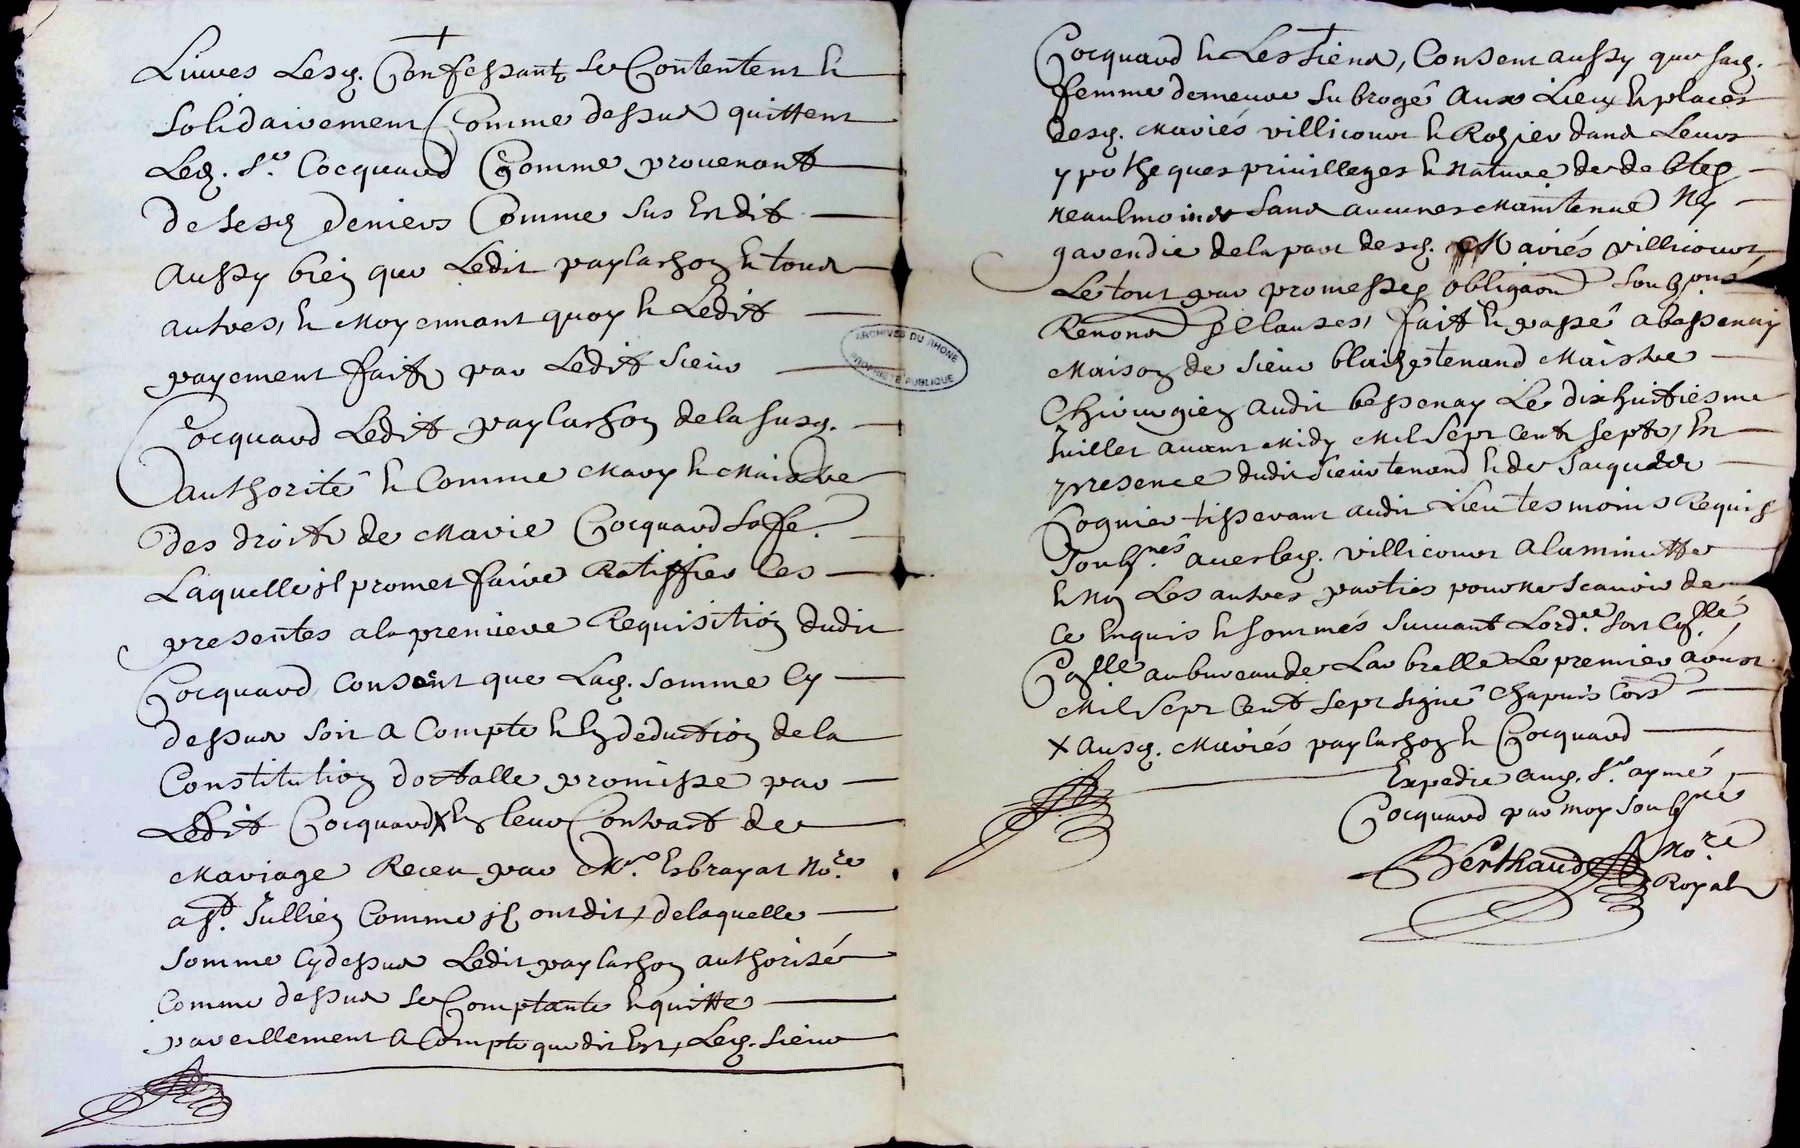 Livres Lesd. Confessants se Contentent et
Solidairement Comme dessus quittent
Led. Sr. Cocquard Comme provenant
de sesd deniers Comme sus Est dit
Aussy bien que Ledit paylasson et tous
autres, et Moyennant quoy et Ledit
payement fait par Ledit Sieur
Cocquard Ledit paylasson de la susd.
authorité et Comme Mary et Maistre
des droits de Marie Cocquard sa fe.
Laquelle il promet faire Ratiffier Ces
presentes a la premiere Requisition dudit
Cocquard, Consent que Lad. somme Cy
dessus soit a Compte et En deduction de la
Constitution dottalle promisse par
Ledit Cocquard X En leur Contract de
Mariage Receu par Mre. Esbrayat Nore.
a St. Jullien Comme ils ont dit, de laquelle
somme Cy dessus Ledit paylasson authorisé
Comme dessus se Comptante et quitte
pareillement a Compte que dit Est, Led. Sieur
Cocquard et Les siens, Consent aussy que sad.
femme demeure subrogé aux Lieux et places
desd. Mariés villicourt et Rozier dans Leurs
ypotheques privilleges et Nature de debtes
Neaulmoings sans aucunes Maintenue Ny
garendie de la part desd. Mariés villicourt
Le tout par promesses obligaons soubzons
Renons et Clauses, fait et passé a bessenay
Maison de Sieur blaize tenand Maistre
Chirurgien audit bessenay Le dixhuitiesme
Juillet avant Midy Mil sept Cents sept, En
presence dudit Sieur tenand et de Jacques
Cognier tisserant audit Lieu tesmoins Requis
Soubznés avec led. villicourt a la minutte
et Non Les autres parties pour Ne scavoir de
Ce Enquis et sommés suivant Lordre soit Collé,
Collé au bureau de Larbrelle Le premier aoust
Mil sept Cent sept signé Chapuis Cors
X Ausd. Mariés paylasson et Cocquard
Expedie aud. Sr. aymé
Cocquard par moy soubzné
Berthaud Nore.
Royal
ARCHIVES DU RHONE
PROPRIETE PUBLIQUE